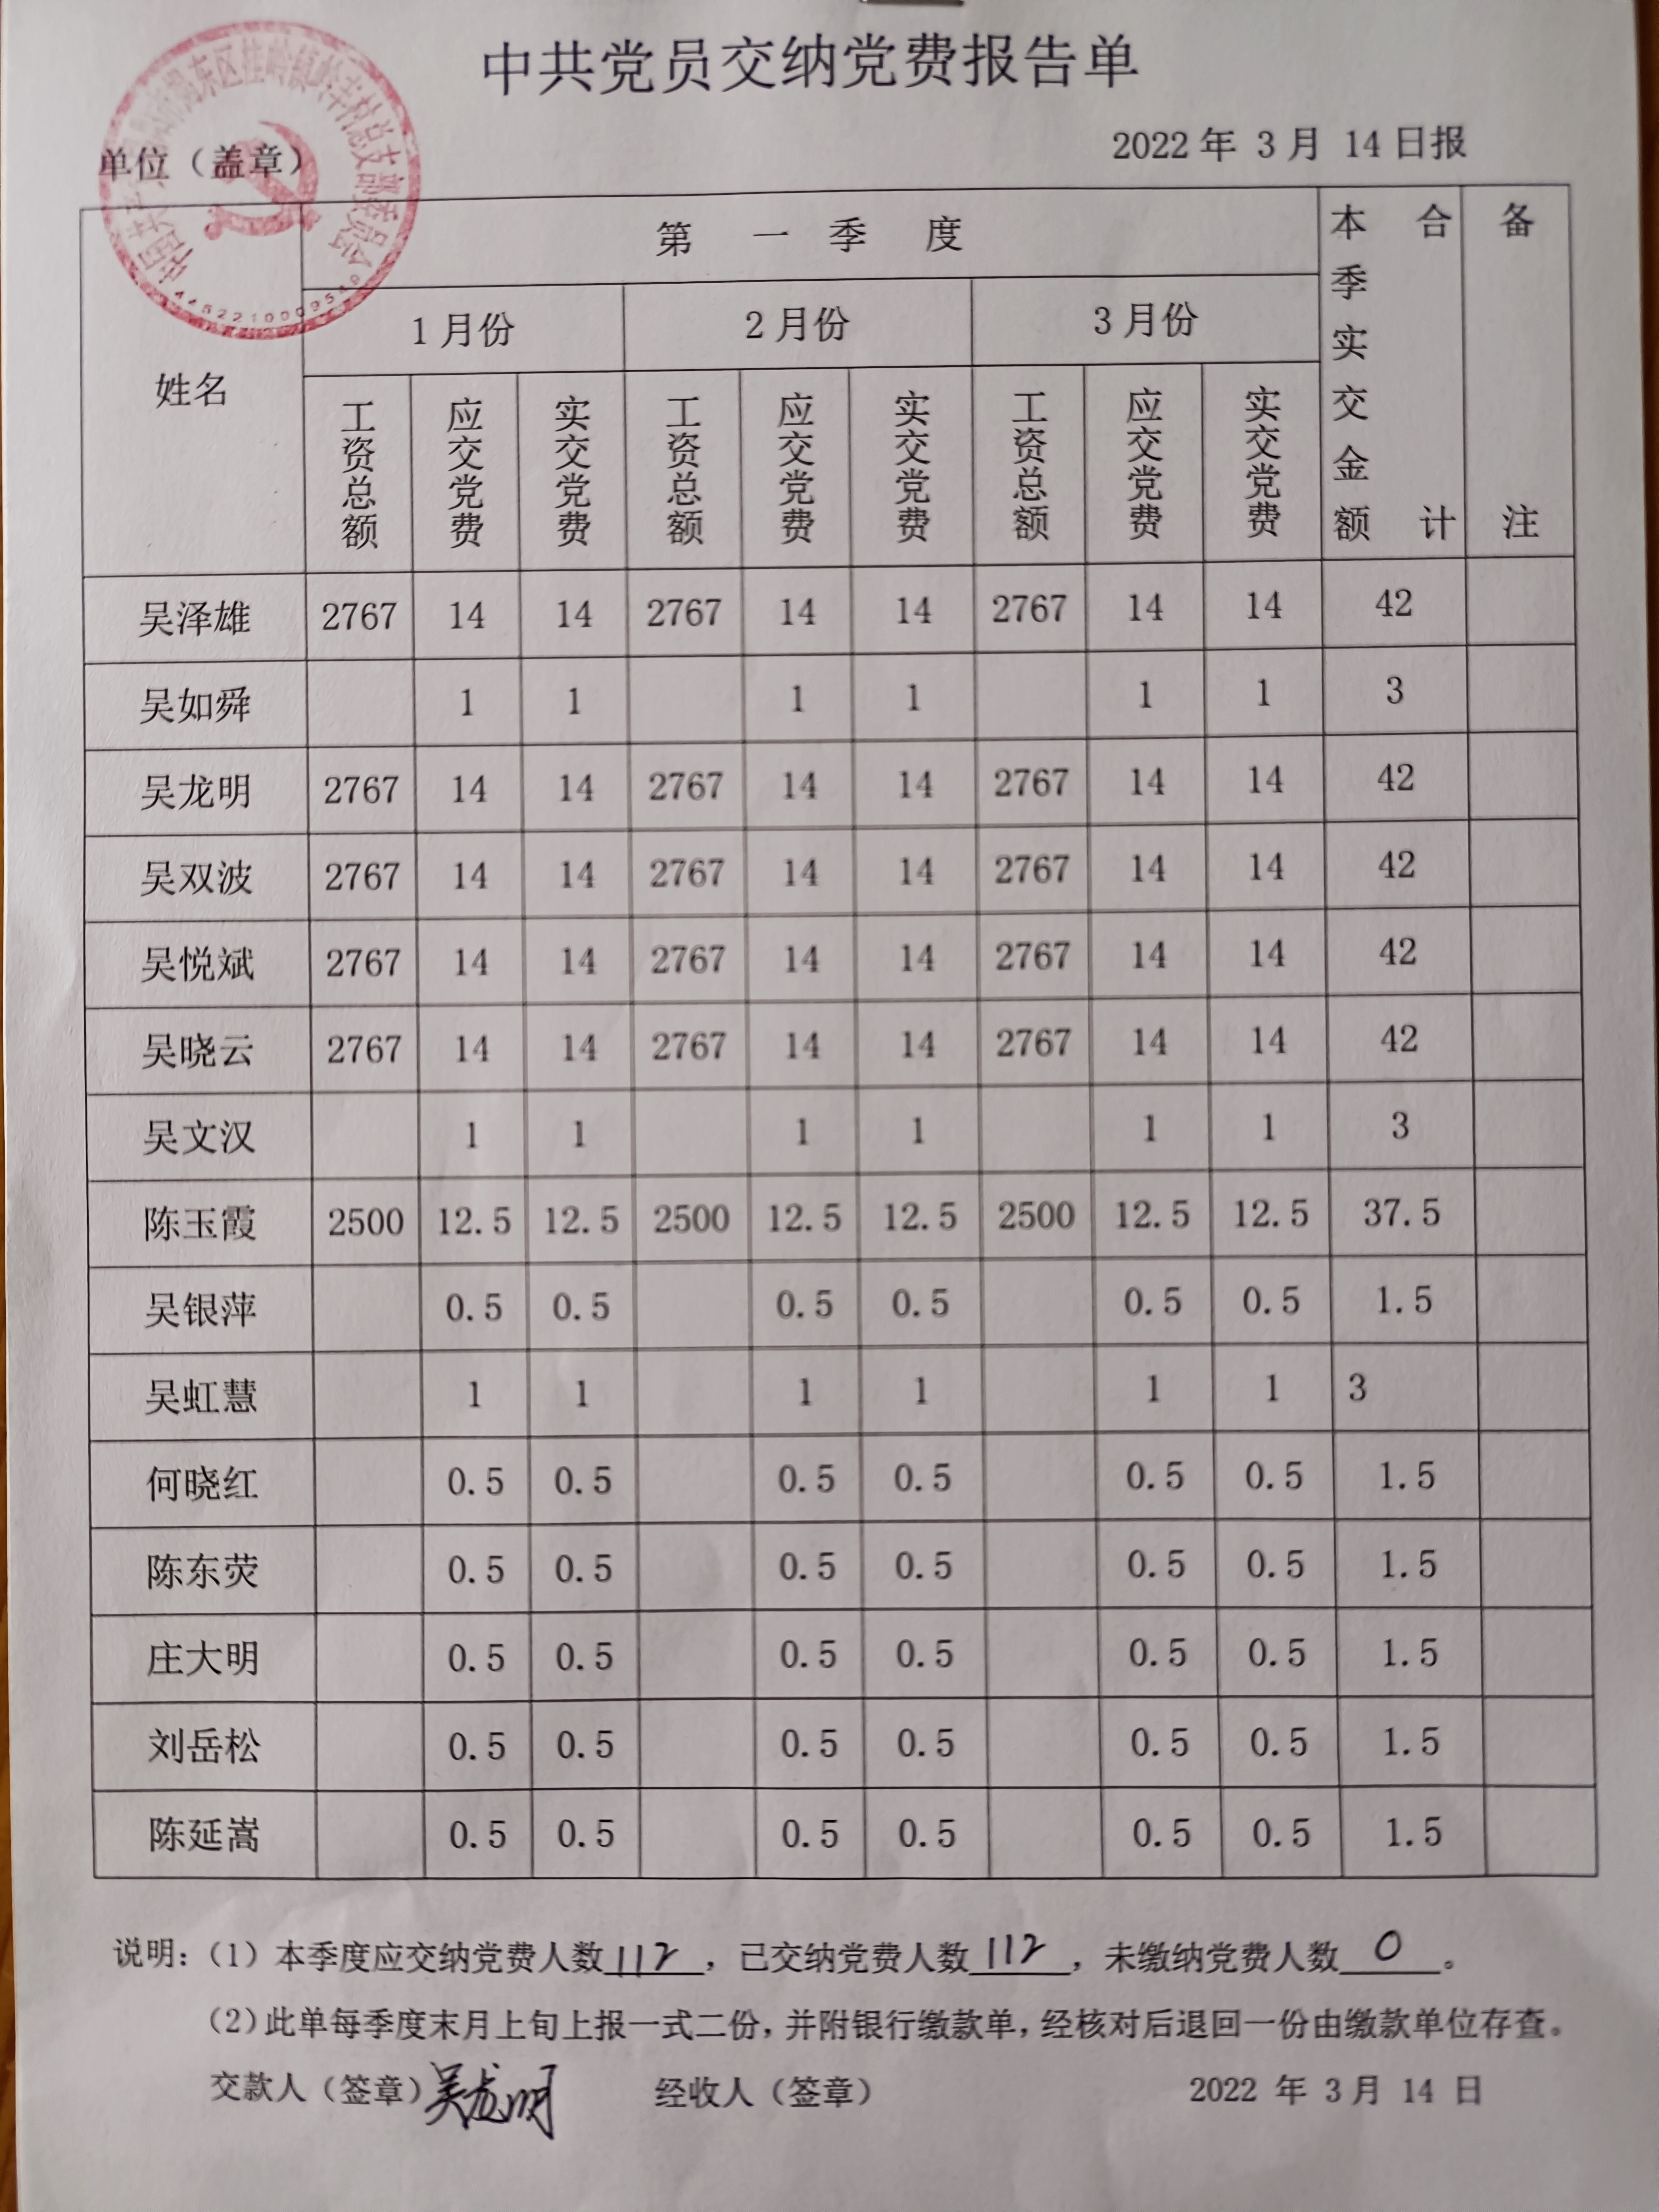 中共党员交纳党费报告单
单位（盖章）
2022 年 3 月 14 日报
姓名 第一季度 本季实交金额合计 备注
1 月份 2 月份 3 月份
工资总额 应交党费 实交党费 工资总额 应交党费 实交党费 工资总额 应交党费 实交党费
吴泽雄 2767 14 14 2767 14 14 2767 14 14 42
吴如舜 1 1 1 1 1 1 3
吴龙明 2767 14 14 2767 14 14 2767 14 14 42
吴双波 2767 14 14 2767 14 14 2767 14 14 42
吴悦斌 2767 14 14 2767 14 14 2767 14 14 42
吴晓云 2767 14 14 2767 14 14 2767 14 14 42
吴文汉 1 1 1 1 1 1 3
陈玉霞 2500 12.5 12.5 2500 12.5 12.5 2500 12.5 12.5 37.5
吴银萍 0.5 0.5 0.5 0.5 0.5 0.5 1.5
吴虹慧 1 1 1 1 1 1 3
何晓红 0.5 0.5 0.5 0.5 0.5 0.5 1.5
陈东荧 0.5 0.5 0.5 0.5 0.5 0.5 1.5
庄大明 0.5 0.5 0.5 0.5 0.5 0.5 1.5
刘岳松 0.5 0.5 0.5 0.5 0.5 0.5 1.5
陈延嵩 0.5 0.5 0.5 0.5 0.5 0.5 1.5
说明：（1）本季度应交纳党费人数112，已交纳党费人数112，未缴纳党费人数0。
（2）此单每季度末月上旬上报一式二份，并附银行缴款单，经核对后退回一份由缴款单位存查。
交款人（签章）吴龙明 经收人（签章） 2022 年 3 月 14 日